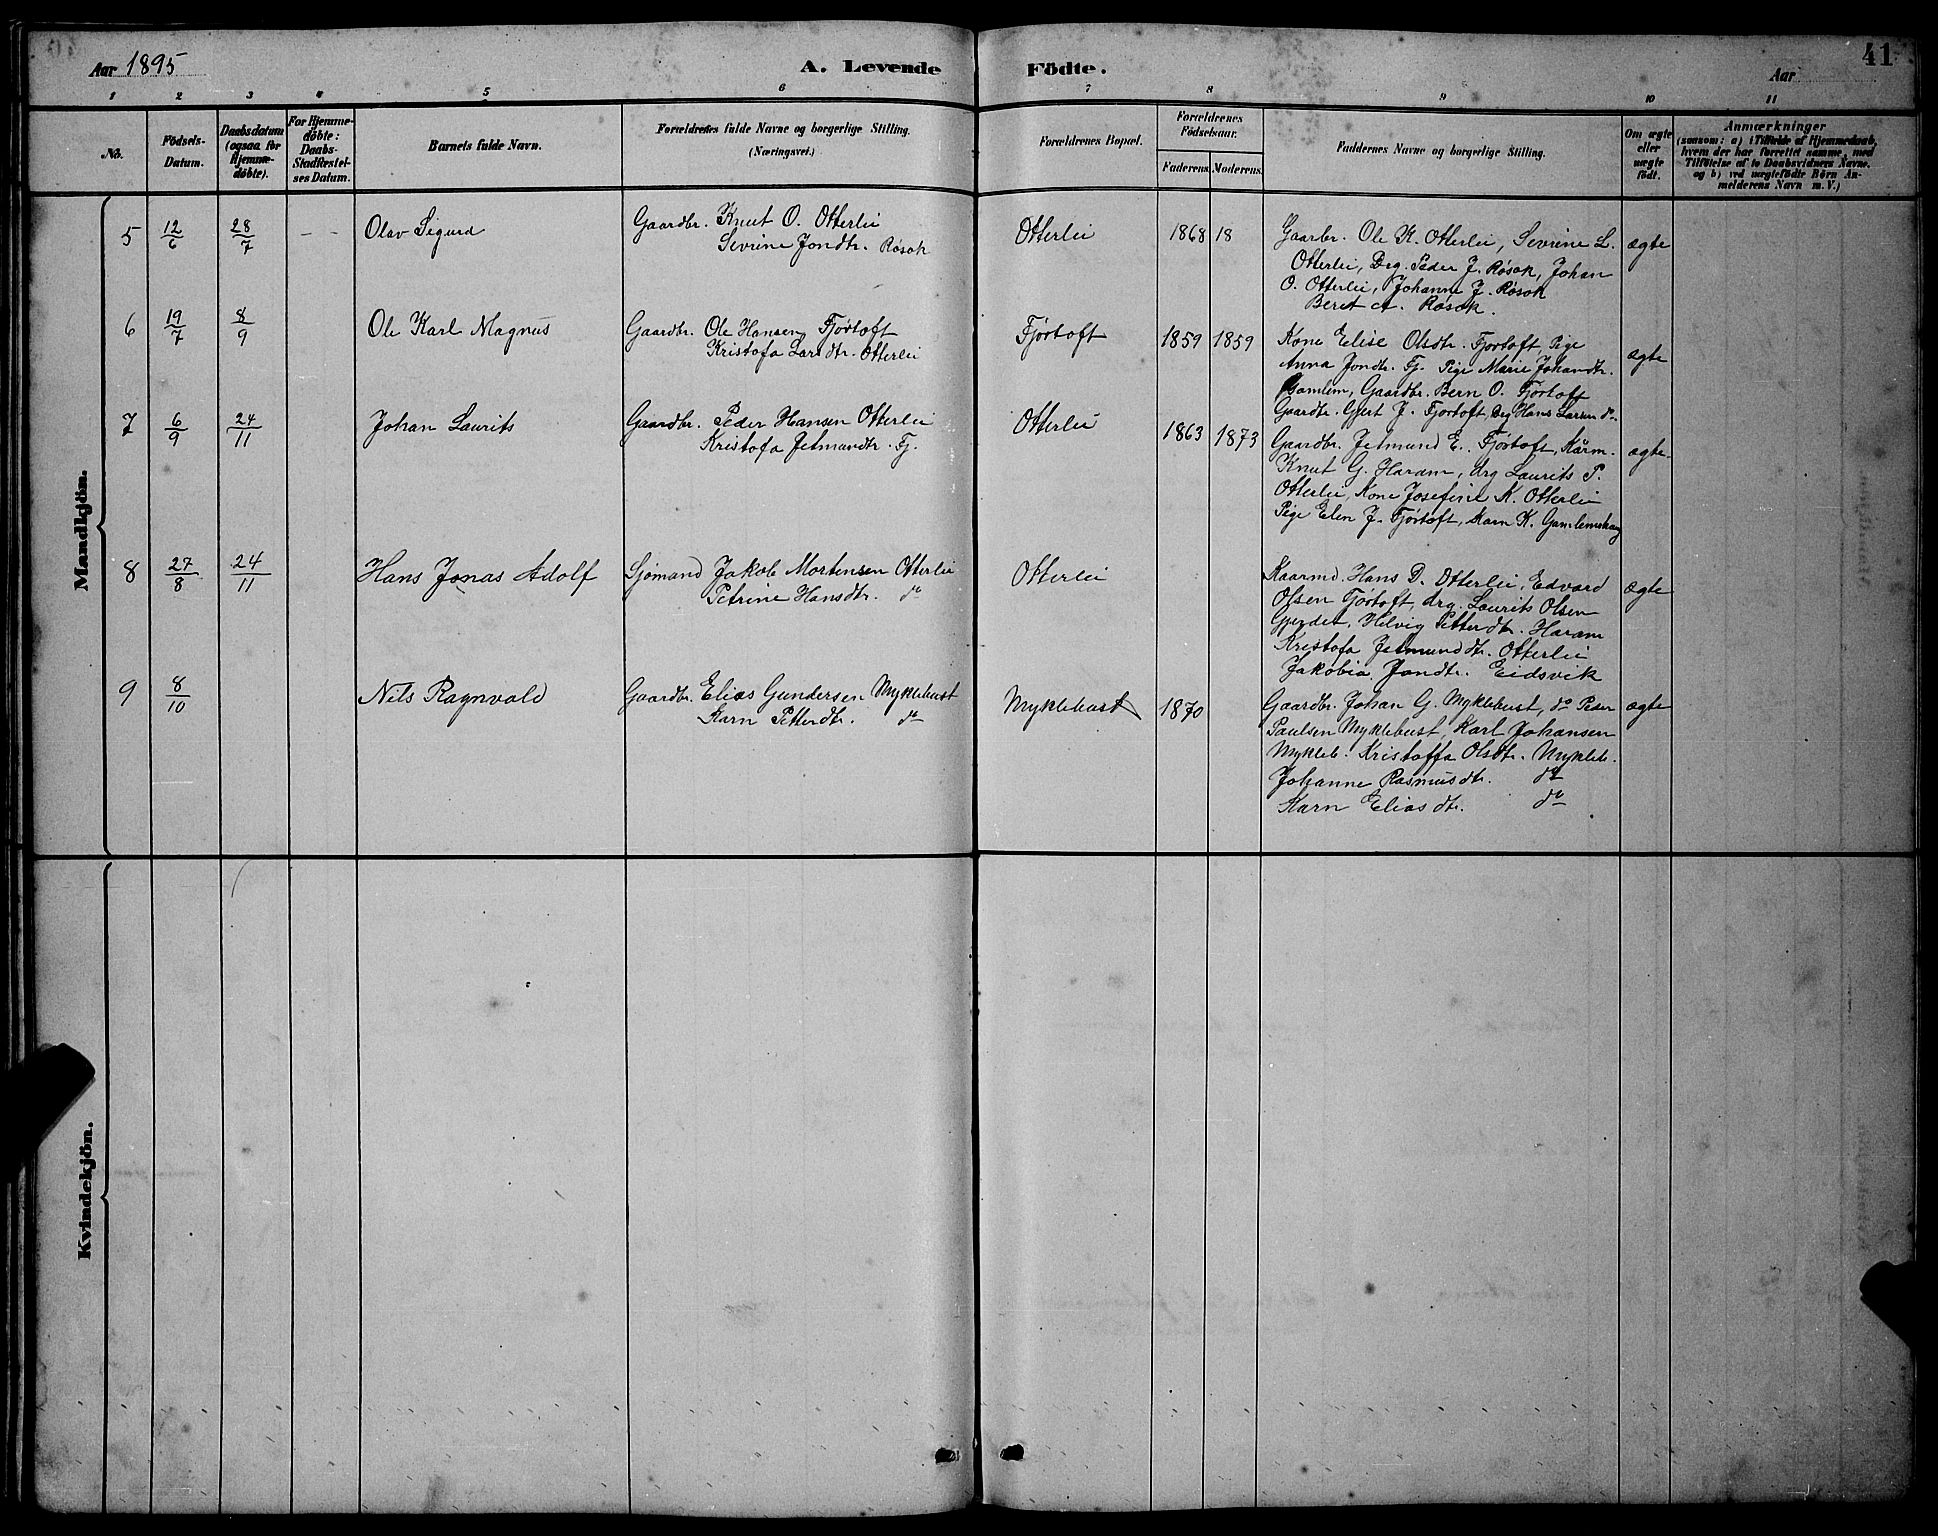 Aar 1895
A. Levende
Födte.
Aar
41
1 2 3 4 5 6 7 8 9 10 11
No.
Födsels-
Datum.
Daabsdatum
(ogsaa for
Hjemme-
döbte).
For Hjemme-
döbte:
Daabs-
Stadfæstel-
ses Datum.
Barnets fulde Navn.
Forældrenes fulde Navne og borgerlige Stilling.
(Næringsvei.)
Forældrenes Bopæl.
Forældrenes
Födselsaar.
Faderens. Moderens.
Faddernes Navne og borgerlige Stilling.
Om ægte
eller
uægte
födt.
Anmærkninger
(saasom: a) i Tilfælde af Hjemmedaab,
hvem der har forrettet samme, med
Tilföielse af to Daabsvidners Navne,
og b) ved uægtefödte Börn An-
melderens Navn m. V.)
Mandkjön.
5 12/6 28/7 - - Olav Sigurd Gaardbr. Knut O. Otterlei
Sevrine Jondtr. Røsok
Otterlei 1868 18 Gaarbr. Ole K. Otterlei, Sevrine L. ægte
Otterlei, Drg. Peder J. Røsok, Johan
O. Otterlei, Johanne J. Røsok
Beret Røsok.
6 19/7 8/9 Ole Karl Magnus Gaardbr. Ole Hansen Fjørtoft
Kristofa Larsdtr. Otterlei
Fjørtoft 1859 1859 Kone Elise Olsdtr. Fjortoft, Pige
Anna Jondtr. Fj. Pige Marie Johandtr. ægte
Gamlem, Gaardbr. Bern O. Fjortoft
Gaardbr. Gjert J. Fjortoft, drg Hans Larsen do
7 6/9 24/11 Johan Laurits Gaardbr. Peder Hansen Otterlei
Kristofa Jetmundtr. Fj.
Otterlei 1863 1873 Gaardbr. Jetmund E. Fjørtoft, Kårm. ægte.
Knut G. Haram, drg Laurits P.
Otterlei, Kone Josefine K. Otterlei
Pige Elen J. Fjørtoft, Karn K. Gamlemshaug
8 27/8 24/11 Hans Jonas Adolf Sjømand Jakob Mortensen Otterlei
Petrine Hansdtr. do
Otterlei Kaarmd. Hans D. Otterlei, Edvard ægte
Olsen Fjortoft, drg. Laurits Olsen
Gjerdet, Helvig Petterdtr. Haram
Kristofa Jetmunddtr. Otterlei
Jakobia Jondtr. Eidsvik
9 8/10 Nils Ragnvald Gaardbr. Elias Gundersen Myklebust
Karn Petterdtr. do
Myklebust 1870 Gaardbr. Johan G. Myklebust, do Peder ægte
Paulsen Myklebust, Karl Johansen
Mykleb. Kristoffa Olsdtr. Mykleb.
Johanne Rasmusdtr. do
Karn Eliasdtr. do
Kvindekjön.